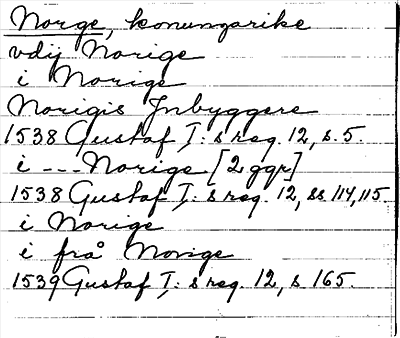 Norge, konungarike
vdij Norige
i Norige
Norigis Jnbyggere
1538 Gustaf I:s reg. 12, s. 5.
i --- Norige [2 ggr]
1538 Gustaf I:s reg. 12, ss. 114, 115.
i Norige
i från Norige
1539 Gustaf I:s reg. 12, s 165.